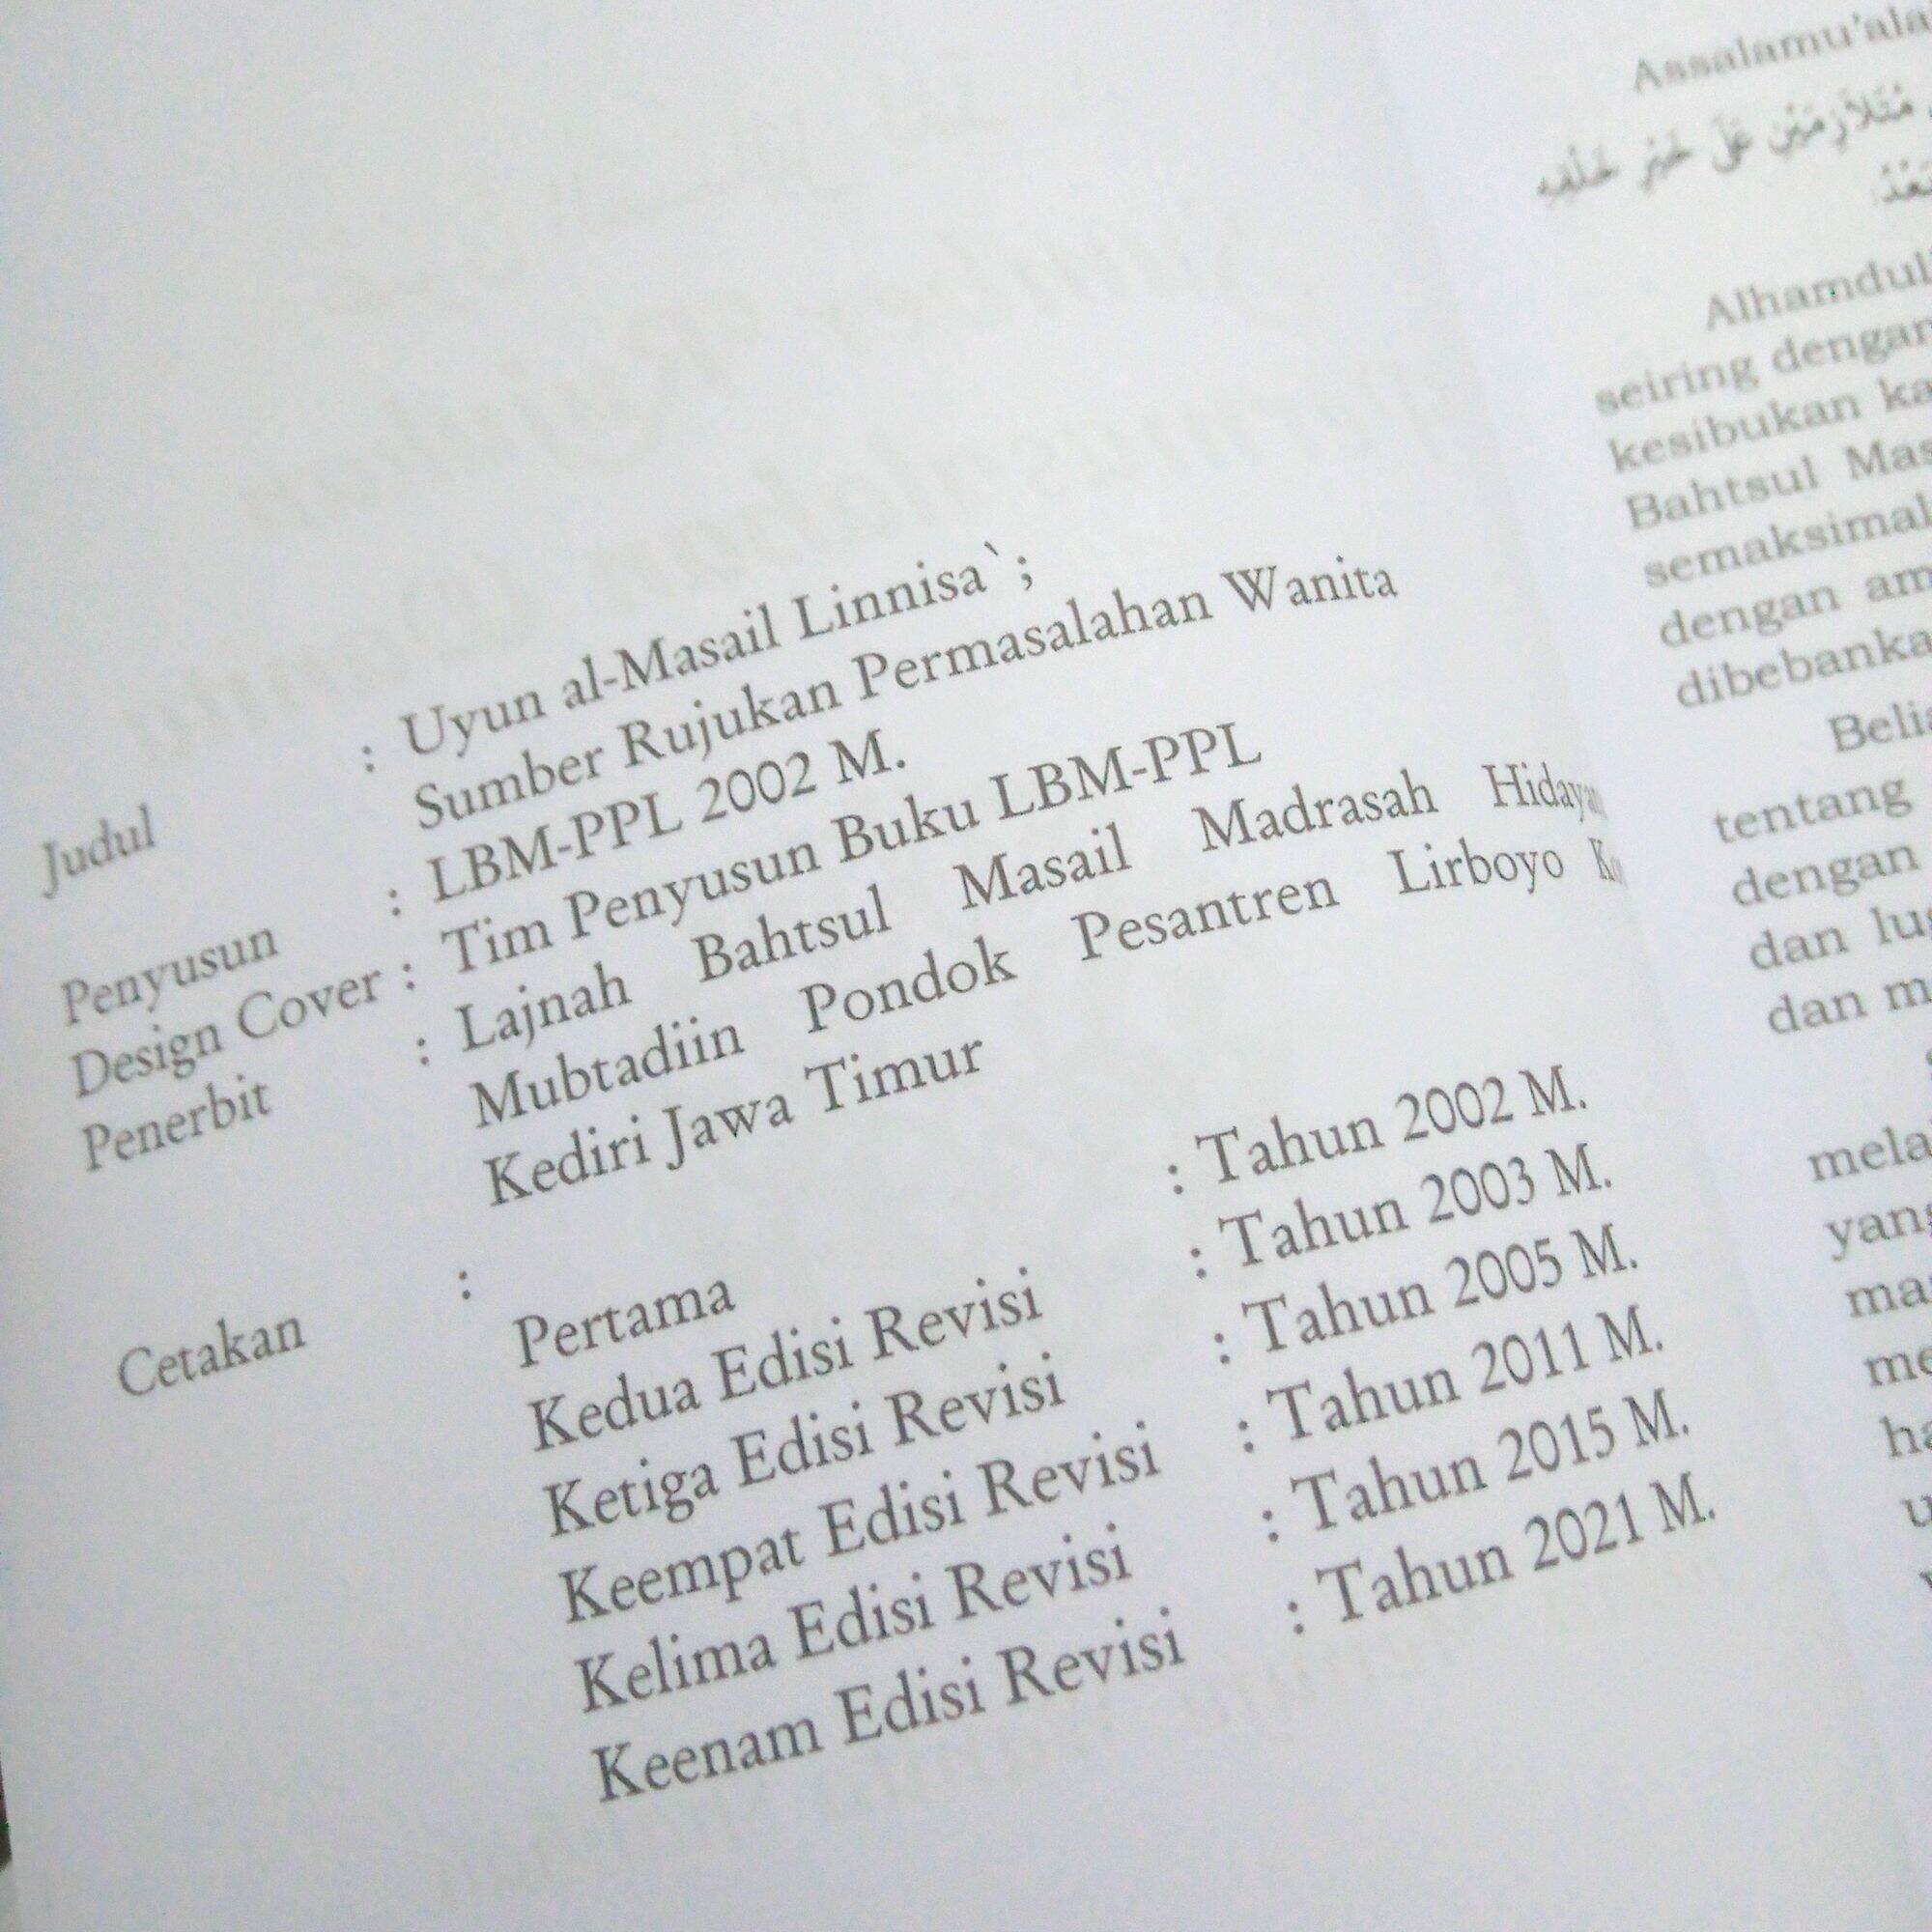 Judul : Uyun al-Masail Linnisa`;
Sumber Rujukan Permasalahan Wanita
Penyusun : LBM-PPL 2002 M.
Design Cover : Tim Penyusun Buku LBM-PPL
Penerbit : Lajnah Bahtsul Masail Madrasah
Mubtadiin Pondok Pesantren Lirboyo
Kediri Jawa Timur
Cetakan :
Pertama : Tahun 2002 M.
Kedua Edisi Revisi : Tahun 2003 M.
Ketiga Edisi Revisi : Tahun 2005 M.
Keempat Edisi Revisi : Tahun 2011 M.
Kelima Edisi Revisi : Tahun 2015 M.
Keenam Edisi Revisi : Tahun 2021 M.
Assalamu'ala
مُتَلَازِمَيْنِ عَلَى خَيْرِ خَلْقِهِ
Alhamdul
seiring dengan
kesibukan ka
Bahtsul Mas
semaksimal
dengan am
dibebanka
Belia
tentang
dengan
dan lu
dan m
mela
yang
ma
me
ha
u